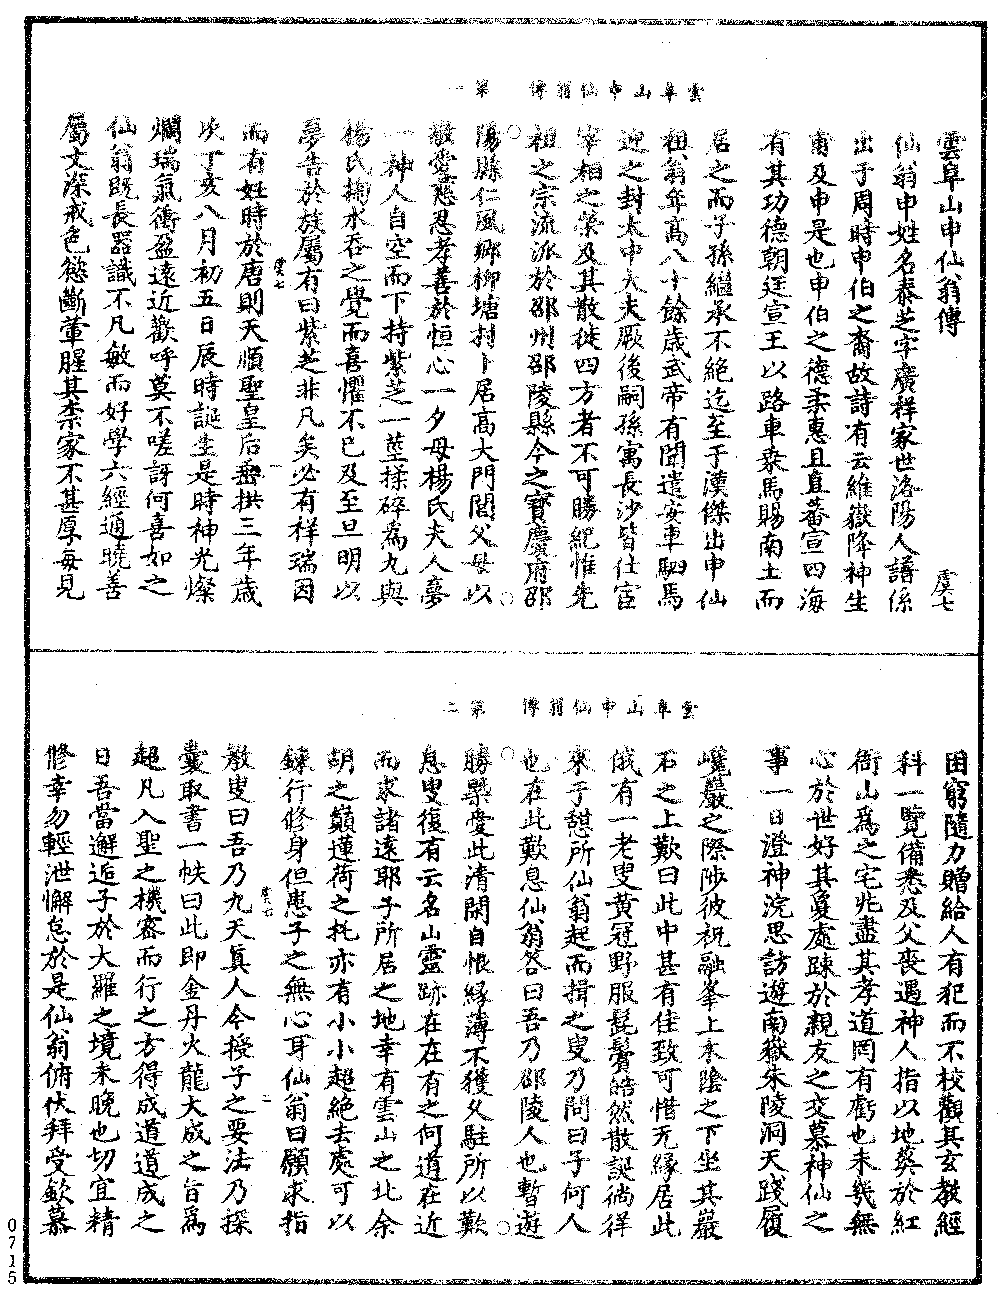 雲阜山申仙翁傳 第一
雲阜山申仙翁傳 虞七
仙翁申姓名泰芝字廣祥家世洛陽人譜係
出于周時申伯之裔故詩有云維嶽降神生
甫及申是也申伯之德柔惠且直蕃宣四海
有其功德朝廷宣王以路車乘馬賜南土而
居之而子孫繼承不絕迄至于漢傑出申仙
祖翁年高八十餘歲武帝有聞遣安車駟馬
迎之封太中大夫厥後嗣孫寓長沙皆仕宦
宰相之榮及其散徙四方者不可勝紀惟先
祖之宗流派於邵州邵陵縣今之寶慶府邵
陽縣仁風鄉柳塘村卜居高大門閭父母以
敬愛慈忍孝善於恒心一夕母楊氏夫人夢
一神人自空而下持紫芝一莖揉碎為丸與
楊氏掬水吞之覺而喜懼不已及至旦明以
夢告於族屬有曰紫芝非凡矣必有祥瑞因
而有妊時於唐則天順聖皇后垂拱三年歲
次丁亥八月初五日辰時誕生是時神光燦
爛瑞氣衝盈遠近歡呼莫不嗟訝何喜如之
仙翁既長器識不凡敏而好學六經通曉善
屬文深戒色慾斷葷腥其柰家不甚厚每見
雲阜山申仙翁傳 第二
困窮隨力贈給人有犯而不校觀其玄教經
科一覽備悉及父喪遇神人指以地葬於紅
衙山為之宅兆盡其孝道罔有虧也未幾無
心於世好其夏處踈於親友之交慕神仙之
事一日澄神浣思訪遊南嶽朱陵洞天踐履
巉巖之際陟彼祝融峯上木陰之下坐其巖
石之上歎曰此中甚有佳致可惜无緣居此
俄有一老叟黃冠野服髭鬢皓然散誕徜徉
來于憩所仙翁起而揖之叟乃問曰子何人
也在此歎息仙翁答曰吾乃邵陵人也暫遊
勝槩愛此清閑自恨緣薄不獲久駐所以歎
息叟復有云名山靈跡在在有之何道在近
而求諸遠耶子所居之地幸有雲山之北余
胡之巔蓮荷之圫亦有小小超絕去處可以
鍊行修身但患子之無心耳仙翁曰願求指
教叟曰吾乃九天真人今授子之要法乃探
囊取書一帙曰此即金丹火龍大成之旨為
超凡入聖之機密而行之方得成道道成之
日吾當邂逅子於大羅之境未晚也切宜精
修幸勿輕泄懈怠於是仙翁俯伏拜受欽慕
0715